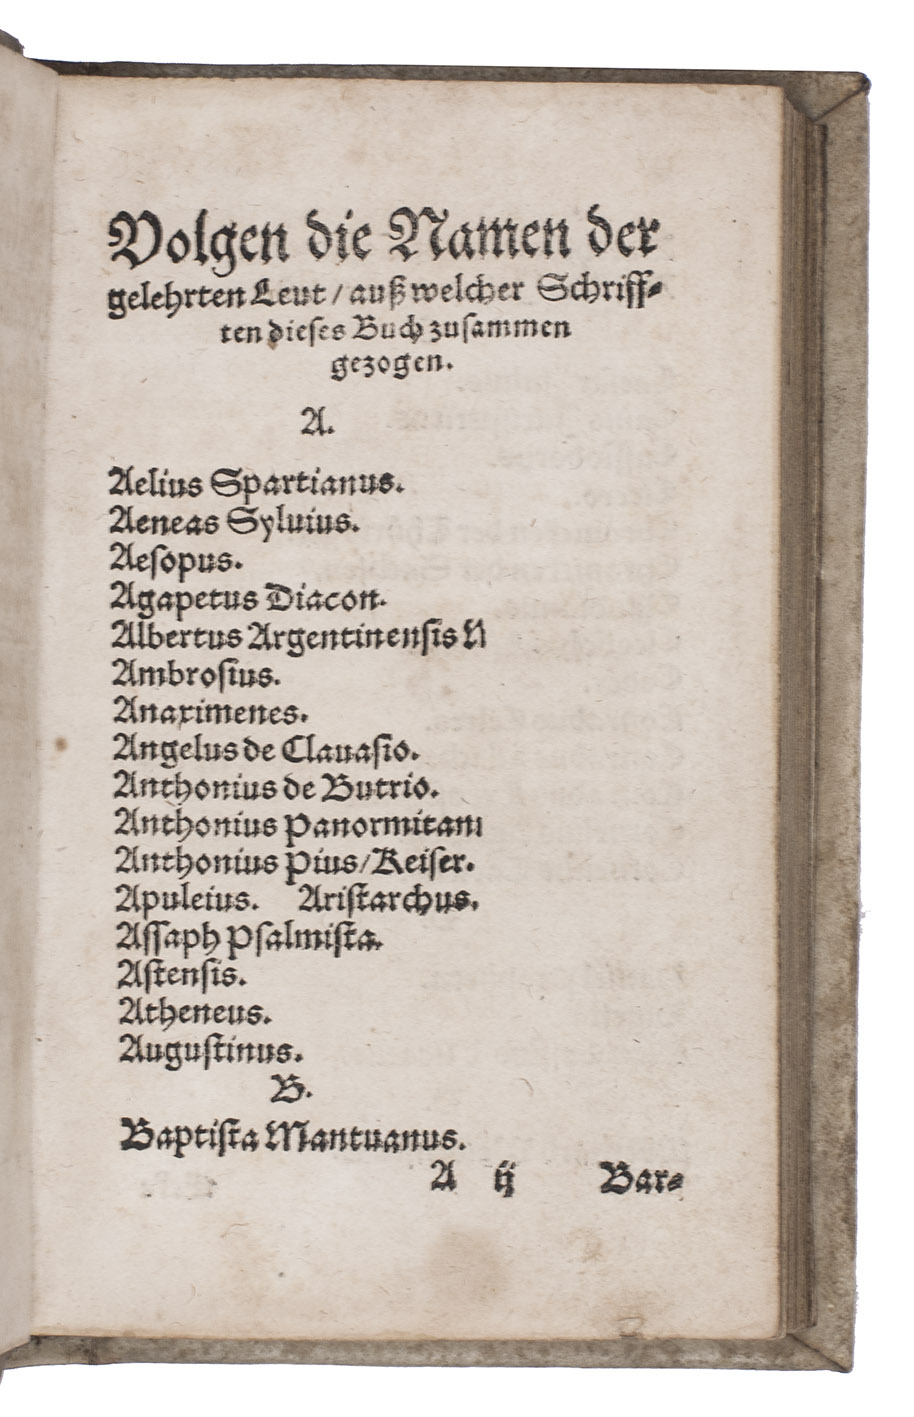 Volgen die Namen der
gelehrten Leut / auß welcher Schriff⸗
ten dieses Buch zusammen
gezogen.
A.
Aelius Spartianus.
Aeneas Syluius.
Aeſopus.
Agapetus Diacon.
Albertus Argentinenſis
Ambroſius.
Anaximenes.
Angelus de Clauaſio.
Anthonius de Butrio.
Anthonius Panormitani
Anthonius Pius / Keiſer.
Apuleius. Ariſtarchus.
Aſſaph Pſalmiſta.
Aſtenſis.
Atheneus.
Auguſtinus.
B.
Baptiſta Mantuanus.
A ij Bar⸗